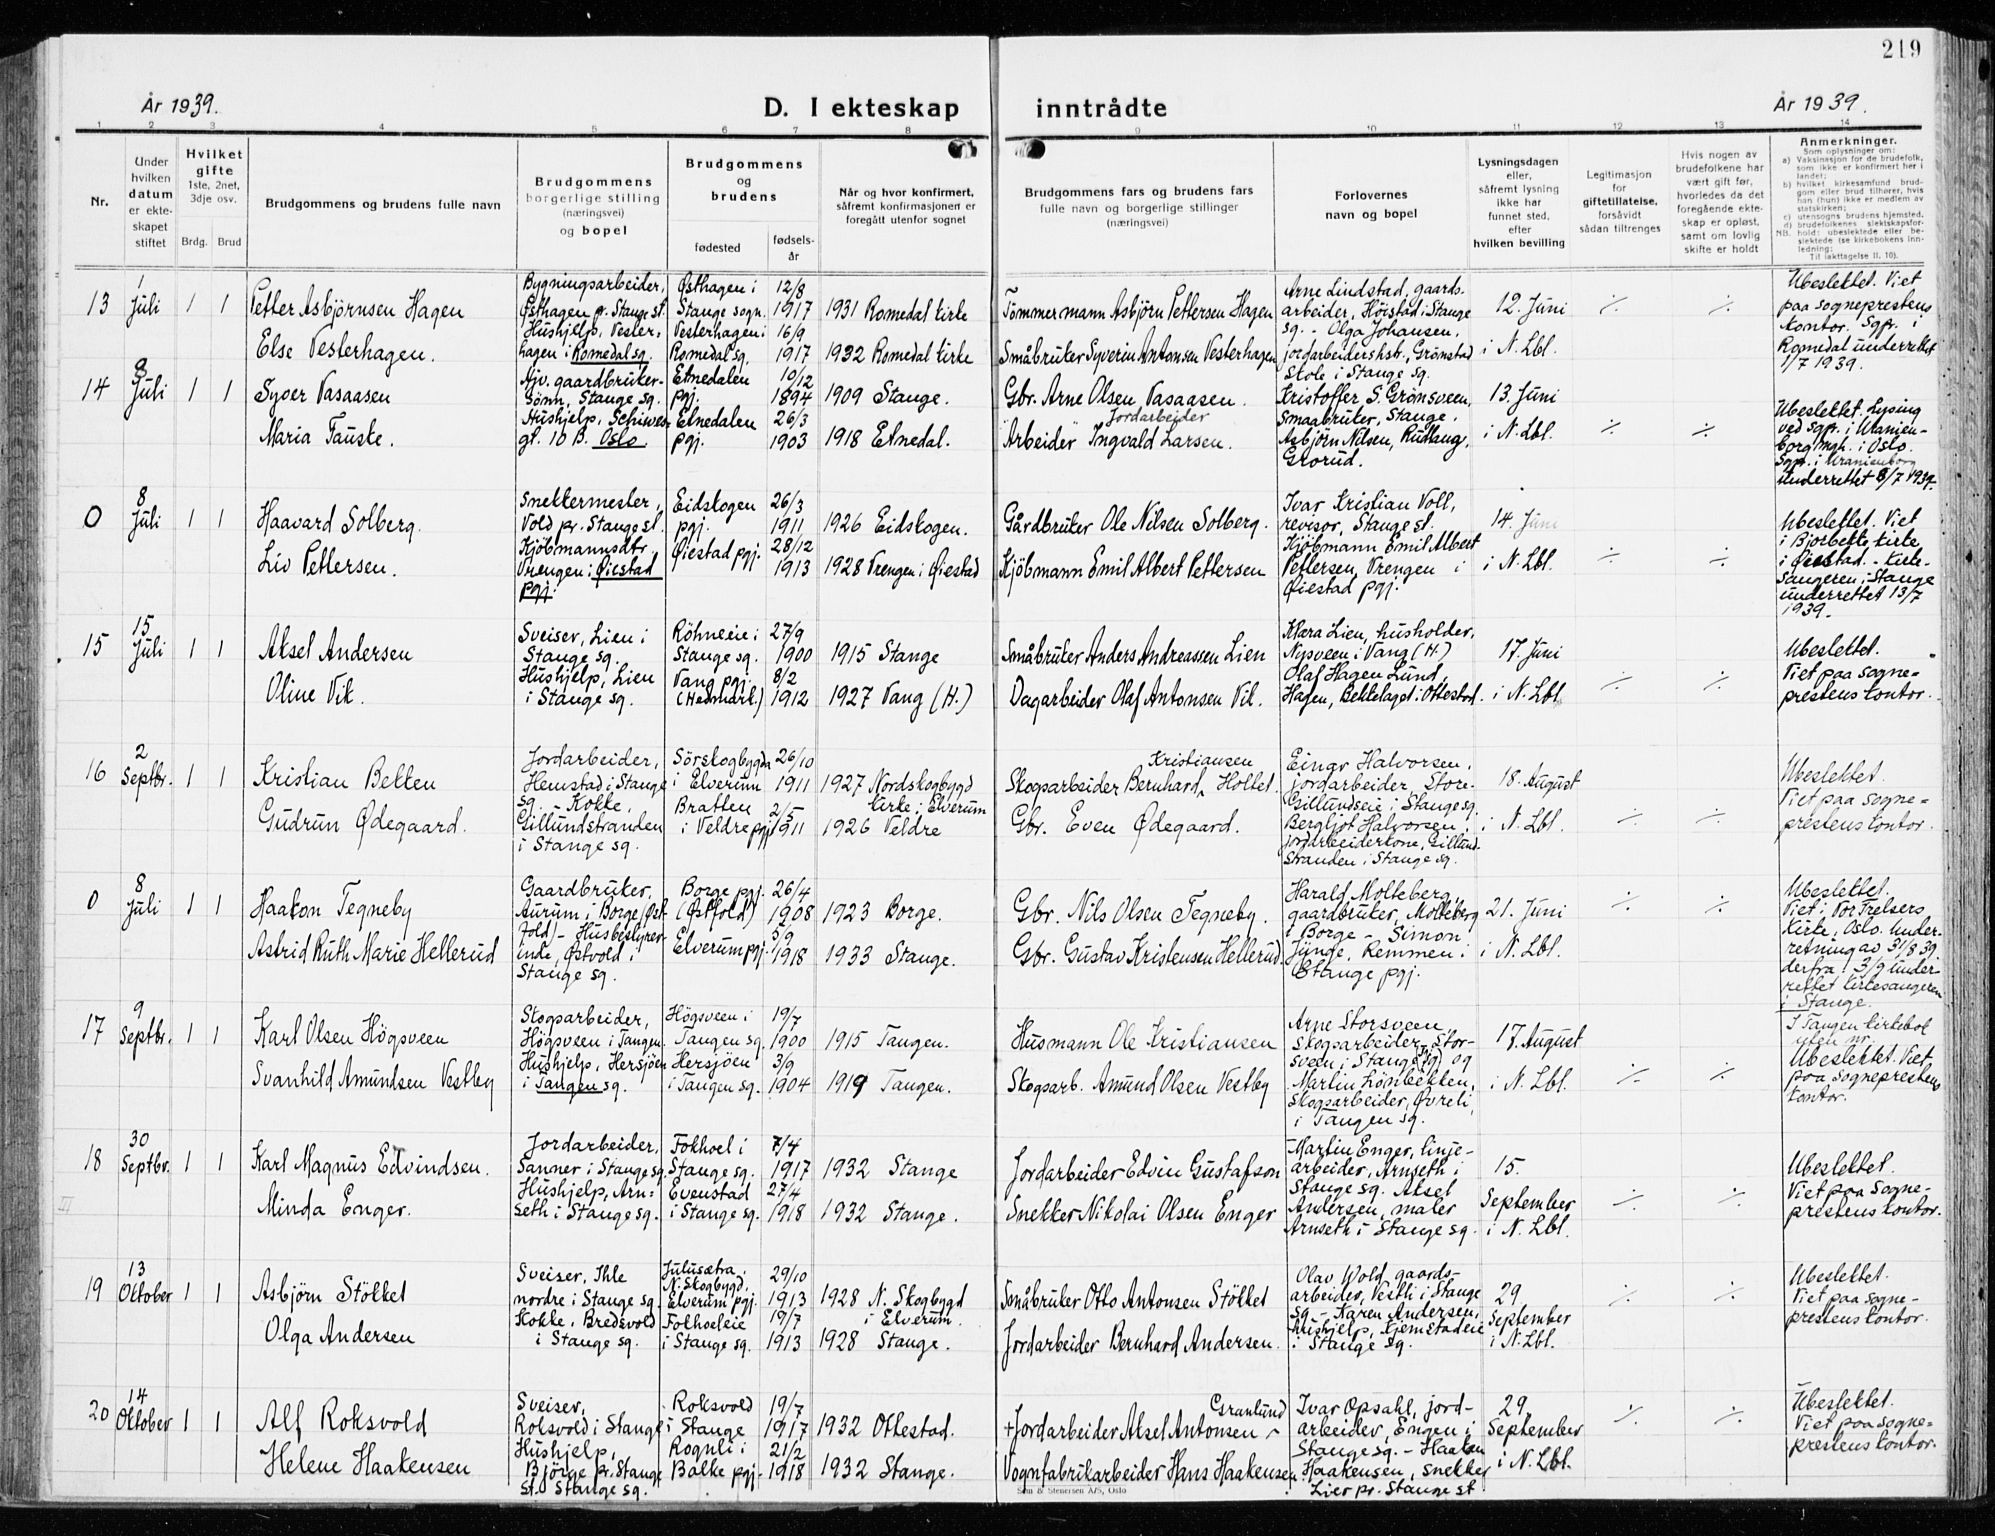 219
År 1939.
D. I ekteskap inntrådte
År 1939.
1 2 3 4 5 6 7 8 9 10 11 12 13 14
Nr.
Under hvilken datum er ekteskapet stiftet
Hvilket gifte
1ste, 2net, 3dje osv.
Brdg. Brud
Brudgommens og brudens fulle navn
Brudgommens borgerlige stilling (næringsvei) og bopel
Brudgommens og brudens
fødested
fødselsår
Når og hvor konfirmert, såfremt konfirmasjonen er foregått utenfor sognet
Brudgommens fars og brudens fars fulle navn og borgerlige stillinger (næringsvei)
Forlovernes navn og bopel
Lysningsdagen eller, såfremt lysning ikke har funnet sted, efter hvilken bevilling
Legitimasjon for giftetillatelse, forsåvidt sådan tiltrenges
Hvis nogen av brudefolkene har vært gift før, hvorledes da det foregående ekteskap er opløst, samt om lovlig skifte er holdt
Anmerkninger.
Som oplysninger om:
a) Vaksinasjon for de brudefolk, som ikke er konfirmert her i landet;
b) hvilket kirkesamfund brudgom eller brud tilhører, hvis han (hun) ikke er medlem av statskirken;
c) utensogns brudens hjemsted.
d) brudefolkenes slektskapsforhold: ubeslektede eller beslektede (se kirkebokens innledning;
NB. Til iakttagelse II, 10).
13
1 Juli
1 1
Petter Asbjørnsen Hagen
Else Vesterhagen.
Bygningsarbeider,
Østhagen pr. Stange st.
Hushjelp, Vester-
hagen i Romedal sg.
Østhagen i
Stange sogn.
Vesterhagen i
Romedal sg.
12/8 1917
16/9 1917
1931 Romedal kirke
1932 Romedal kirke
Tømmermann Asbjørn Pettersen Hagen
Småbruker Syverin Antonsen Vesterhagen
Arne Lindstad, gaards-
arbeider, Höistad i Stange
sg. - Olga Johansen,
jordarbeidershstr., Grønstad
skole i Stange sg.
12. Juni
i N. Lbl.
⁒ ⁒
Ubeslektet. Viet
paa sogneprestens
kontor. Sgpr. i
Romedal underrettet
1/7 1939.
14
8 Juli
1 1
Syver Vasaasen
Maria Fauske.
Hjv. gaardbruker-
sønn, Stange sg.
Hushjelp, Schives
gt. 10 B. Oslo
Etnedalen
pgj.
Etnedalen
pgj.
10/12 1894
26/3 1903
1909 Stange.
1918 Etnedal.
Gbr. Arne Olsen Vasaasen.
Jordarbeider
Arbeider Ingvald Larsen.
Kristoffer S. Grønsveen,
smaabruker, Stange.
Asbjörn Nilsen, Rudhaug,
Grorud.
13. Juni
i N. Lbl.
⁒ ⁒
Ubeslektet. Lysing
ved sgpr. i Uranien-
borg mgh. i Oslo.
Sgpr. i Uranienborg
underrettet 8/7 1939.
0
8 Juli
1 1
Haavard Solberg.
Liv Pettersen.
Snekkermester,
Vold pr. Stange st.
Kjöbmannsdtr.
Vrengen i Øiestad
pgj.
Eidskogen
pgj.
Øiestad pgj.
26/3 1911
28/12 1913
1926 Eidskogen.
1928 Vrengen i Øiestad
Gårdbruker Ole Nilsen Solberg.
Kjöbmann Emil Albert Pettersen
Ivar Kristian Voll,
revisor, Stange st.
Kjöbmann Emil Albert
Pettersen, Vrengen i
Øiestad pgj.
14. Juni
i N. Lbl.
⁒ ⁒
Ubeslektet. Viet
i Bjorbekk kirke
i Øiestad. - Kirke-
sangeren i Stange
underrettet 13/7
1939.
15
15 Juli
1 1
Aksel Andersen
Oline Vik.
Sveiser, Lien i
Stange sg.
Hushjelp, Lien
i Stange sg.
Röhneeie i
Stange sg.
Vang pgj.
(Hedmark.)
27/9 1900
8/2 1912
1915 Stange
1927 Vang (H.)
Småbruker Anders Andreassen Lien
Dagarbeider Olaf Antonsen Vik.
Klara Lien, husholder,
Nysveen i Vang (H.)
Olaf Hagen Lund,
Hagen, Bekkelaget i Ottestad.
17. Juni
i N. Lbl.
⁒ ⁒
Ubeslektet.
Viet paa sogne-
prestens kontor.
16
2 Septbr.
1 1
Kristian Bekken
Gudrun Ødegaard.
Jordarbeider,
Hemstad i Stange
sg. - Kokke,
Gillundstranden
i Stange sg.
Sörskogbygda
i Elverum
Bratten
i Veldre pgj.
26/10 1911
2/5 1911
1927 Nordskogbygd
kirke i Elverum
1926 Veldre
Kristiansen
Skogsarbeider Bernhard Holtet.
Gbr. Even Ødegaard.
Einar Halvorsen,
jordarbeider, Store-
Gillundseie i Stange sg.
Bergljot Halvorsen,
jordarbeiderkone, Gillund-
stranden i Stange sg.
18. August
i N. Lbl.
⁒ ⁒
Ubeslektet.
Viet paa sogne-
prestens kontor.
0
8 Juli
1 1
Haakon Tegneby
Astrid Ruth Marie Hellerud
Gaardbruker,
Aurum i Borge (Øst-
fold) - Husbestyrer-
inde, Østvold i
Stange sg.
Borge pgj.
(Østfold)
Elverum pgj.
26/4 1908
5/9 1918
1923 Borge.
1933 Stange.
Gbr. Nils Olsen Tegneby.
Gbr. Gustav Kristensen Hellerud.
Harald Molteberg,
gaardbruker, Molteberg
i Borge - Simon
Jünge, Remmen i
Stange pgj.
21. Juni
i N. Lbl.
⁒ ⁒
Ubeslektet.
Viet i Vor Frelsers
kirke, Oslo. Under-
retning av 31/8 39.
derfra. 3/9 under-
rettet kirkesangeren
i Stange.
17
9 Septbr.
1 1
Karl Olsen Högsveen
Svanhild Amundsen Vestby
Skogsarbeider,
Högsveen i Tangen.
Hushjelp, Hersjöen
i Tangen sg.
Högsveen i
Tangen sg.
Hersjöen
i Tangen sg.
19/7 1900
3/9 1904
1915 Tangen.
1919 Tangen.
Husmann Ole Kristiansen
Skogsarb. Amund Olsen Vestby
Arne Storsveen,
Skogsarbeider, Stor-
sveen i Stange sg. og
Martin Lönbekken,
Skogsarbeider, Øvreli,
i Tangen sg.
17. August
i N. Lbl.
⁒ ⁒
I Tangen kirkebok
uten nr.
Ubeslektet. Viet
paa sogneprestens
kontor.
18
30 Septbr.
1 1
Karl Magnus Edvindsen.
Minda Enger.
Jordarbeider,
Sanner i Stange sg.
Hushjelp, Arn-
seth i Stange sg.
Fokhoel i
Stange sg.
Evenstad
i Stange sg.
7/4 1917
27/4 1918
1932 Stange
1932 Stange.
Jordarbeider Edvin Gustafson
Snekker Nikolai Olsen Enger
Martin Enger, linje-
arbeider, Arnseth i
Stange sg. Aksel
Andersen, maler
Arnseth i Stange sg.
15. September
i N. Lbl.
⁒ ⁒
Ubeslektet.
Viet paa sogne-
prestens kontor.
19
13 Oktober
1 1
Asbjörn Stökket
Olga Andersen
Sveiser, Ihle
nordre i Stange sg.
Kokke, Bredsvold
i Stange sg.
Julusætra.
N. Skogbygd.
Elverum pgj.
Folhoeleie
i Stange sg.
29/10 1913
19/7 1913
1928 N. Skogbygd
i Elverum.
1928 Stange.
Småbruker Otto Antonsen Stökket
Jordarbeider Bernhard Andersen.
Olav Wold, gaards-
arbeider, Vestli i Stange
sg. - Karen Andersen,
hushjelp, Hjemstadeie
i Stange sg.
29 September
i N. Lbl.
⁒ ⁒
Ubeslektet.
Viet paa sogne-
prestens kontor.
20
14 Oktober
1 1
Alf Roksvold
Helene Haakensen
Sveiser,
Roksvold i Stange
Hushjelp,
Björge pr. Stange
st. Stange sg.
Roksvold
i Stange
Rognli i
Balke pgj.
19/7 1917
21/2 1918
1932 Ottestad.
1932 Stange.
Granlund
+ Jordarbeider Aksel Antonsen
Vognfabrikarbeider Hans Haakensen.
Ivar Opsahl, jord-
arbeider, Engen i
Stange sg. - Haakon
Haakensen, snekker
Lier pr. Stange st
29. September
i N. Lbl.
⁒ ⁒
Ubeslektet.
Viet paa sogne-
prestens kontor.
Sem & Stenersen A/S, Oslo